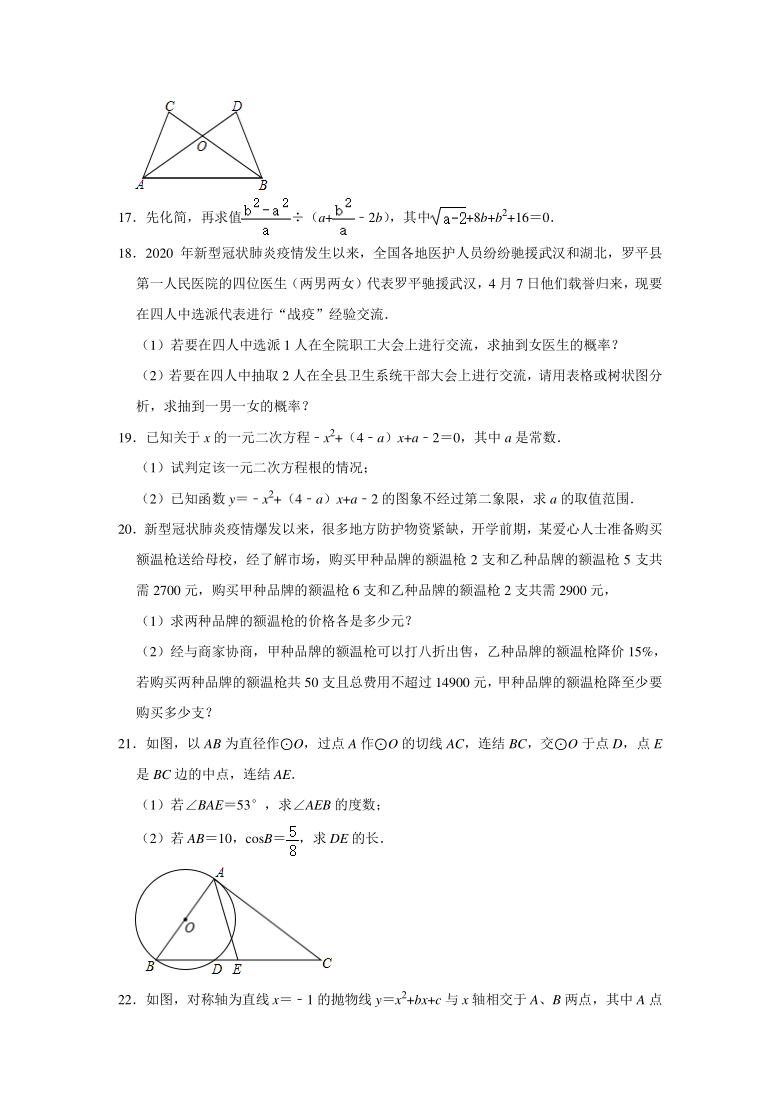 C D
O
A B
17．先化简，再求值$\frac{b^2-a^2}{a}$÷（a+$\frac{b^2}{a}$﹣2b），其中$\sqrt{a-2}$+8b+b²+16＝0．
18．2020 年新型冠状肺炎疫情发生以来，全国各地医护人员纷纷驰援武汉和湖北，罗平县
第一人民医院的四位医生（两男两女）代表罗平驰援武汉，4 月 7 日他们载誉归来，现要
在四人中选派代表进行“战疫”经验交流．
（1）若要在四人中选派 1 人在全院职工大会上进行交流，求抽到女医生的概率？
（2）若要在四人中抽取 2 人在全县卫生系统干部大会上进行交流，请用表格或树状图分
析，求抽到一男一女的概率？
19．已知关于 x 的一元二次方程﹣x²+（4﹣a）x+a﹣2＝0，其中 a 是常数．
（1）试判定该一元二次方程根的情况；
（2）已知函数 y＝﹣x²+（4﹣a）x+a﹣2 的图象不经过第二象限，求 a 的取值范围．
20．新型冠状肺炎疫情爆发以来，很多地方防护物资紧缺，开学前期，某爱心人士准备购买
额温枪送给母校，经了解市场，购买甲种品牌的额温枪 2 支和乙种品牌的额温枪 5 支共
需 2700 元，购买甲种品牌的额温枪 6 支和乙种品牌的额温枪 2 支共需 2900 元，
（1）求两种品牌的额温枪的价格各是多少元？
（2）经与商家协商，甲种品牌的额温枪可以打八折出售，乙种品牌的额温枪降价 15%，
若购买两种品牌的额温枪共 50 支且总费用不超过 14900 元，甲种品牌的额温枪降至少要
购买多少支？
21．如图，以 AB 为直径作⊙O，过点 A 作⊙O 的切线 AC，连结 BC，交⊙O 于点 D，点 E
是 BC 边的中点，连结 AE．
（1）若∠BAE＝53°，求∠AEB 的度数；
（2）若 AB＝10，cosB＝$\frac{5}{8}$，求 DE 的长．
A
O
B D E C
22．如图，对称轴为直线 x＝﹣1 的抛物线 y＝x²+bx+c 与 x 轴相交于 A、B 两点，其中 A 点